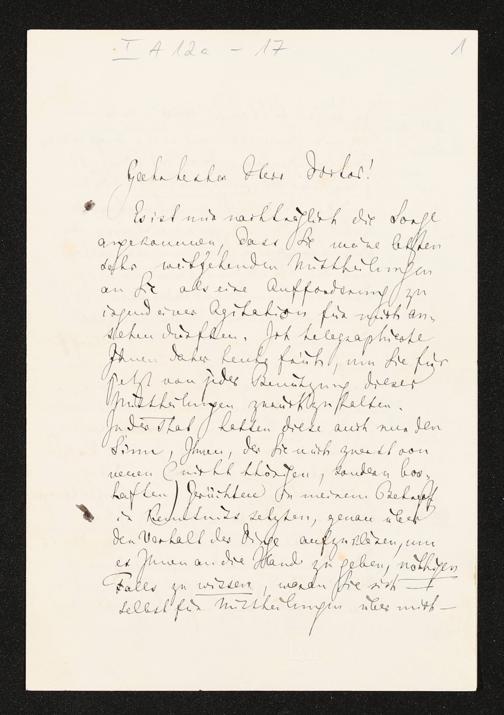 I A 12a - 17 1
Geehrtester Herr Doctor!
Es ist mir nachträglich die Sorge
angekommen, dass Sie meine letzten
sehr weitgehenden Mittheilungen
an Sie als eine Aufforderung zu
irgend einer Agitation für mich an-
sehen dürften. Ich telegraphierte
Ihnen daher heute früh, um Sie für
jetzt von jeder Benützung dieser
Mittheilungen zurückzuhalten.
In der That hatten diese auch nur den
Sinn, Ihnen, der Sie mich zuerst von
neuen (nicht thörigen, sondern bos-
haften) Gerüchten in meinem Betreff
in Kenntniss setzten, genau über
den Verhalt der Dinge aufzuklären, um
es Ihnen an die Hand zu geben, nöthigen
Falles zu wissen, woran Sie sich
selbst für Mittheilungen über mich